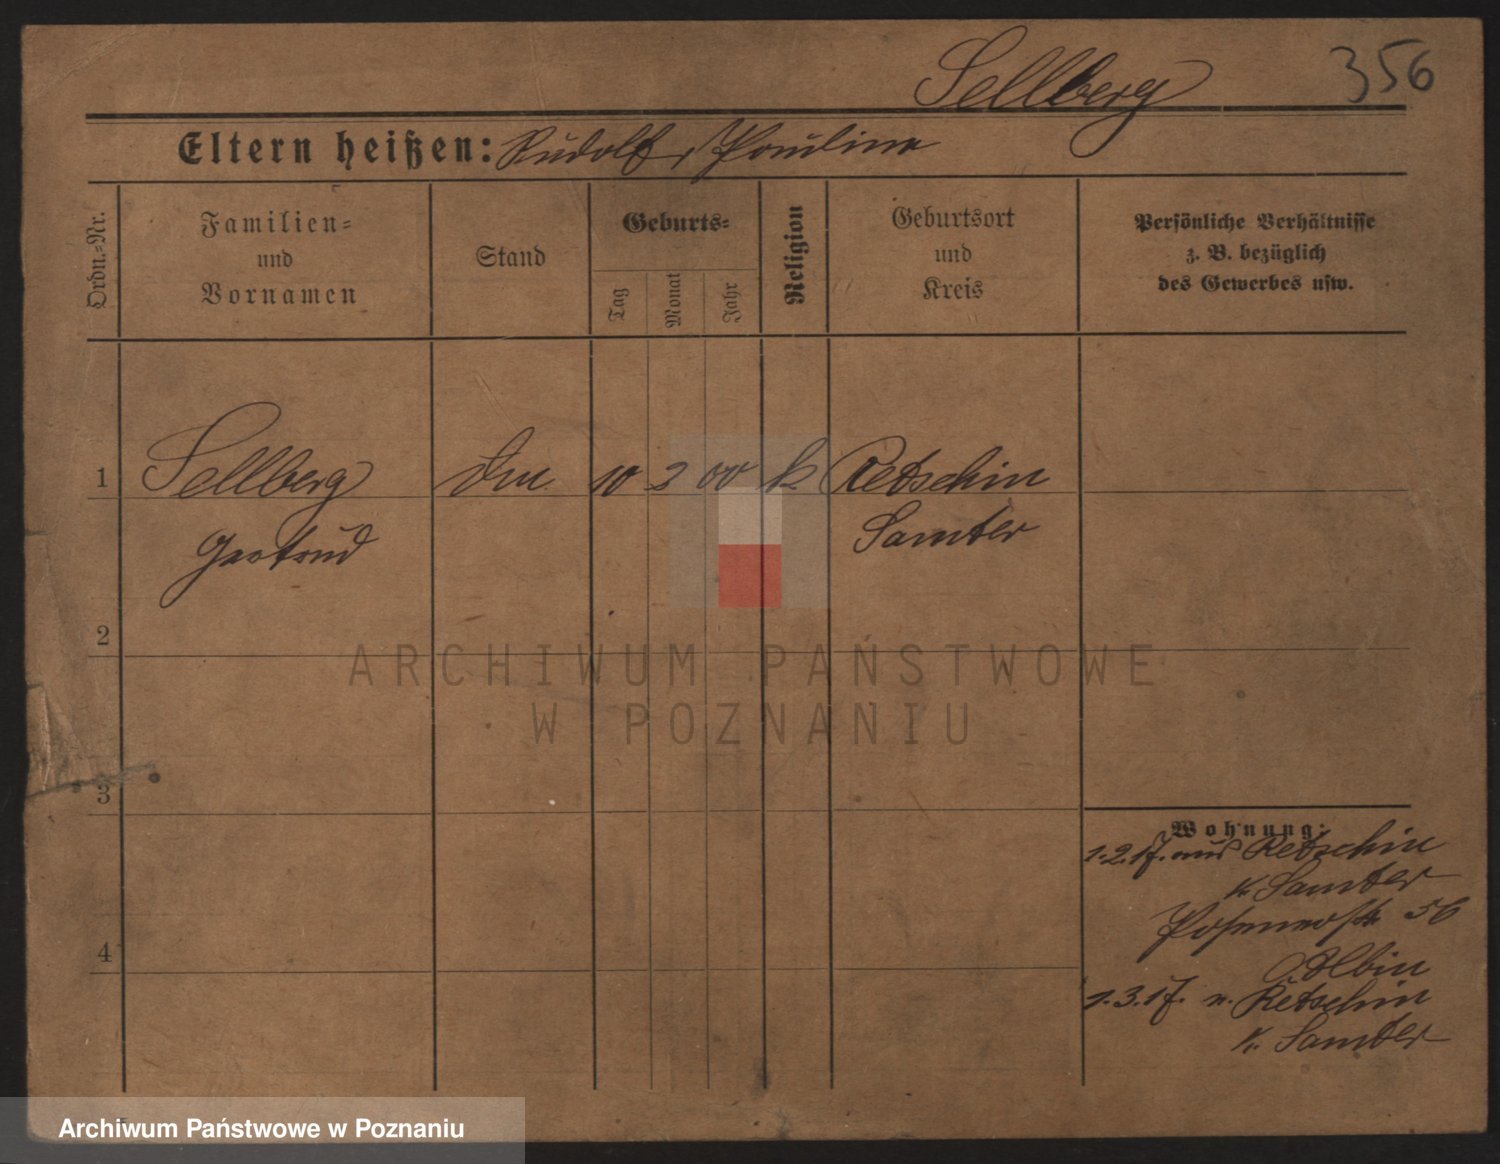 Sellberg 356
Eltern heißen: Rudolf, Paulina
Ordn.=Nr.
Familien=
und
Vornamen
Stand
Geburts=
Tag
Monat
Jahr
Religion
Geburtsort
und
Kreis
Persönliche Verhältnisse
z. B. bezüglich
des Gewerbes usw.
1 Sellberg 10 2 00 k Retschin
Gertrud Samter
2
3
4
Wohnung:
1.2.17. aus Retschin
Kr. Samter
Posenerstr 56
Albin
1.3.17. n. Retschin
Kr. Samter
ARCHIWUM PAŃSTWOWE
W POZNANIU
Archiwum Państwowe w Poznaniu